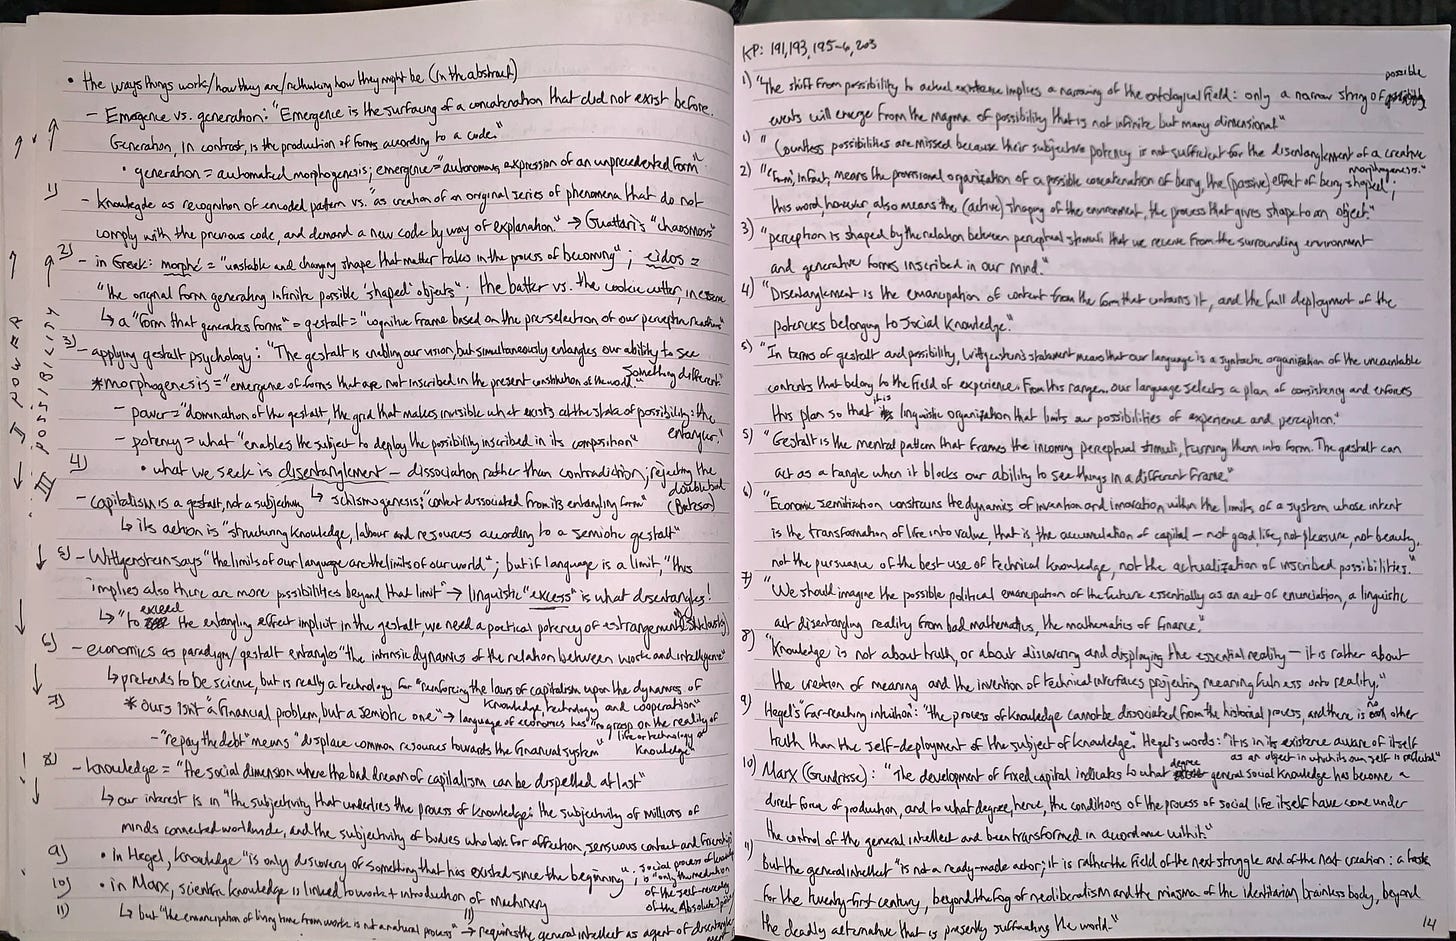 • the ways things work/how they are/rethinking how they might be (in the abstract)
– Emergence vs. generation: "Emergence is the surfacing of a concatenation that did not exist before.
Generation, in contrast, is the production of forms according to a code."
• generation = automated morphogenesis; emergence = "autonomous expression of an unprecedented form"
1) – knowledge as recognition of encoded pattern vs. "as creation of an original series of phenomena that do not
comply with the previous code, and demand a new code by way of explanation." → Guattari's "chaosmosis"
2) – in Greek: morphé = "unstable and changing shape that matter takes in the process of becoming"; eidos =
"the original form generating infinite possible 'shaped' objects"; the batter vs. the cookie cutter, in essence
↳ a "form that generates forms" = gestalt = "cognitive frame based on the pre-selection of our perceptive reactions"
3) – applying gestalt psychology: "The gestalt is enabling our vision, but simultaneously entangles our ability to see
something different."
*morphogenesis = "emergence of forms that are not inscribed in the present constitution of the world"
– power = "domination of the gestalt, the grid that makes invisible what exists at the state of possibility: the
entangler."
– potency = what "enables the subject to deploy the possibility inscribed in its composition"
4) • what we seek is disentanglement – dissociation rather than contradiction; rejecting the
double bind (Bateson)
– capitalism is a gestalt, not a subjectivity ↳ schismogenesis; "content dissociated from its entangling form"
↳ its action is "structuring knowledge, labour and resources according to a semiotic gestalt"
5) – Wittgenstein says "the limits of our language are the limits of our world"; but if language is a limit, "this
implies also there are more possibilities beyond that limit" → linguistic "excess" is what disentangles!
↳ "to exceed the entangling effect implicit in the gestalt, we need a poetical potency of estrangement" (Shklovsky)
6) – economics as paradigm/gestalt entangles "the intrinsic dynamics of the relation between work and intelligence"
↳ pretends to be science, but is really a technology for "reinforcing the laws of capitalism upon the dynamics of
knowledge, technology and cooperation"
7) * ours isn't "a financial problem, but a semiotic one" → language of economics has "no grasp on the reality of
life or technology or knowledge"
– "repay the debt" means "displace common resources towards the financial system"
8) – knowledge = "the social dimension where the bad dream of capitalism can be dispelled at last"
↳ our interest is in "the subjectivity that underlies the process of knowledge: the subjectivity of millions of
minds connected worldwide, and the subjectivity of bodies who look for affection, sensuous contact and friendship"
9) • in Hegel, knowledge "is only discovery of something that has existed since the beginning"; social process of
is "only the mediation of the self-revealing of the Absolute
10) • in Marx, scientific knowledge is linked to work + introduction of machinery
11) ↳ but "the emancipation of living time from work is not a natural process" → requires the general intellect as agent of
POWER
POSSIBILITY
III
KP: 191, 193, 195-6, 203
1) "The shift from possibility to actual existence implies a narrowing of the ontological field: only a narrow string of possible
events will emerge from the magma of possibility that is not infinite but many dimensional"
1) "Countless possibilities are missed because their subjective potency is not sufficient for the disentanglement of a creative
morphogenesis."
2) "Form, in fact, means the provisional organization of a possible concatenation of being, the (passive) effect of being shaped;
this word, however, also means the (active) shaping of the environment, the process that gives shape to an object."
3) "perception is shaped by the relation between perceptual stimuli that we receive from the surrounding environment
and generative forms inscribed in our mind."
4) "Disentanglement is the emancipation of content from the form that contains it, and the full deployment of the
potencies belonging to social knowledge."
5) "In terms of gestalt and possibility, Wittgenstein's statement means that our language is a syntactic organization of the uncountable
contents that belong to the field of experience. From this range... our language selects a plan of consistency and enforces
this plan so that it is linguistic organization that limits our possibilities of experience and perception."
5) "Gestalt is the mental pattern that frames the incoming perceptual stimuli, turning them into form. The gestalt can
act as a tangle when it blocks our ability to see things in a different frame."
6) "Economic semiotization constrains the dynamics of invention and innovation within the limits of a system whose intent
is the transformation of life into value, that is, the accumulation of capital – not good life, not pleasure, not beauty,
not the pursuance of the best use of technical knowledge, not the actualization of inscribed possibilities."
7) "We should imagine the possible political emancipation of the future essentially as an act of enunciation, a linguistic
act disentangling reality from bad mathematics, the mathematics of finance."
8) "Knowledge is not about truth, or about discovering and displaying the essential reality – it is rather about
the creation of meaning and the invention of technical interfaces projecting meaningfulness onto reality."
9) Hegel's "far-reaching intuition": "the process of knowledge cannot be dissociated from the historical process, and there is no other
truth than the self-deployment of the subject of knowledge." Hegel's words: "it is in its existence aware of itself
as an object in which its own self is reflected"
10) Marx (Grundrisse): "The development of fixed capital indicates to what degree general social knowledge has become a
direct force of production, and to what degree, hence, the conditions of the process of social life itself have come under
the control of the general intellect and been transformed in accordance with it."
11) but the general intellect "is not a ready-made actor; it is rather the field of the next struggle and of the next creation: a task
for the twenty-first century, beyond the fog of neoliberalism and the miasma of the identitarian, brainless body, beyond
the deadly alternative that is presently suffocating the world."
121